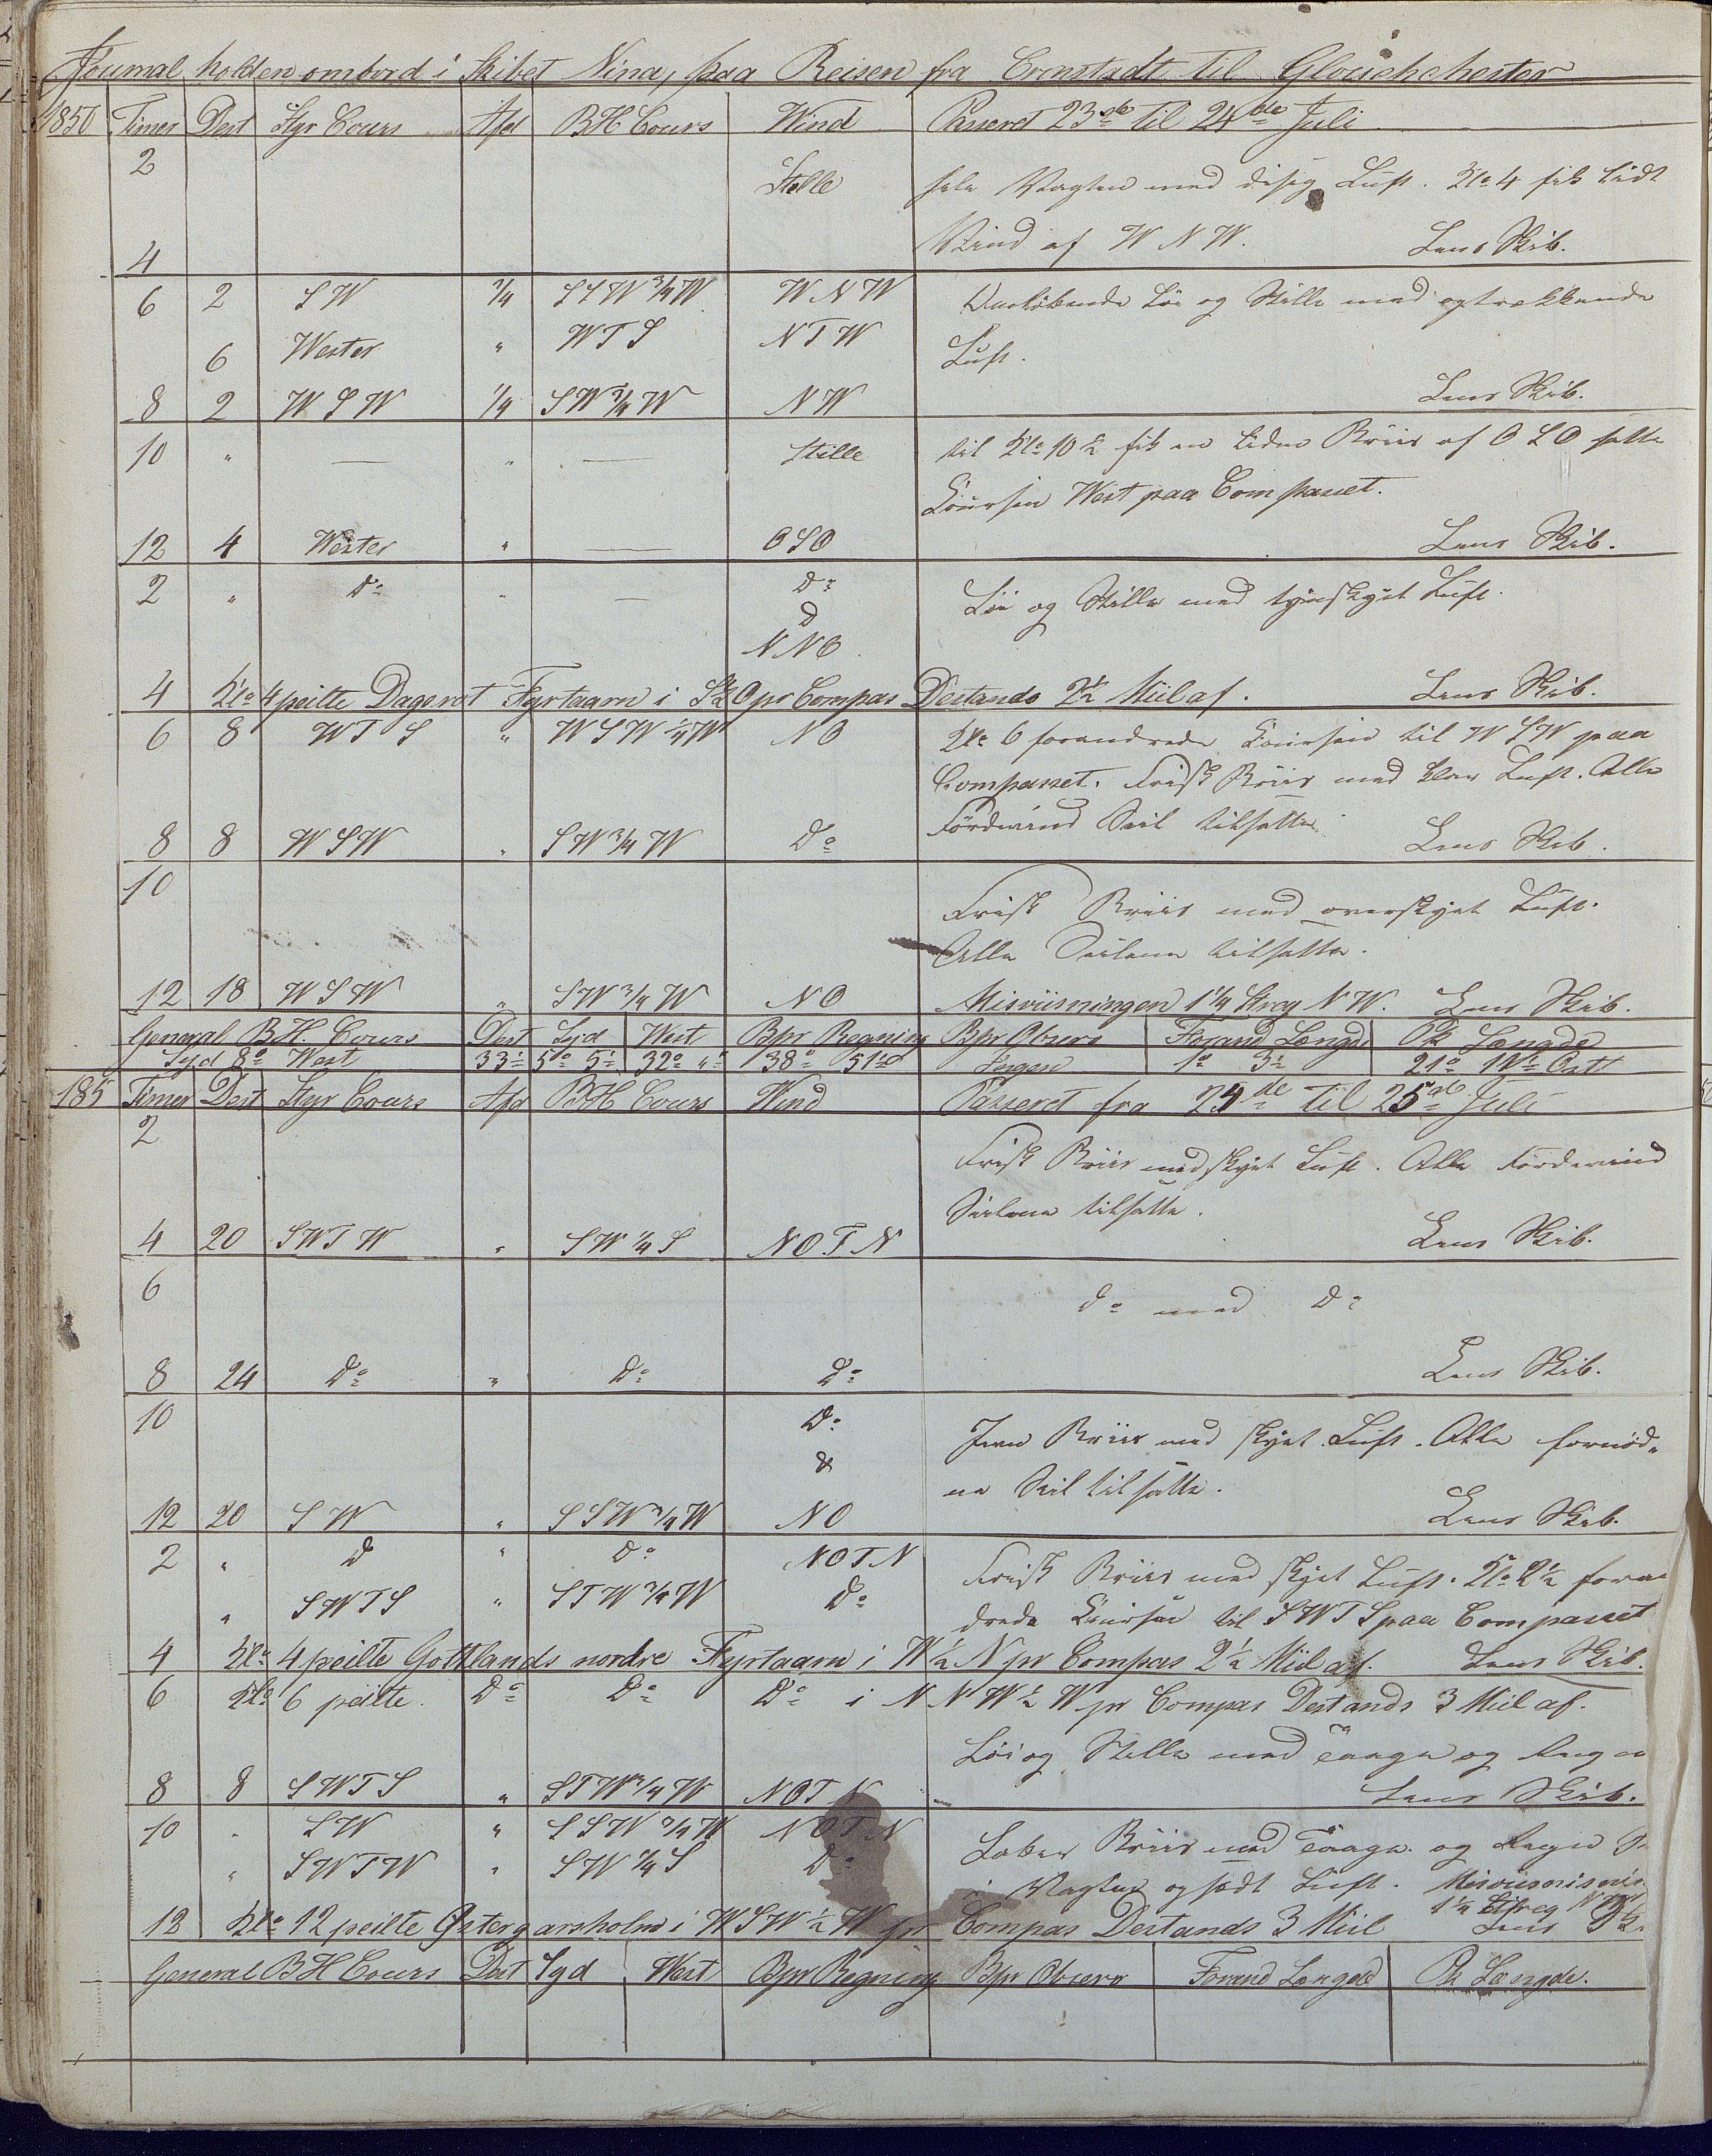 Journal holden ombord i Skibet Nina, paa Reisen fra Cronstadt til Glouchchester
1850 Timer Dest Styr Cours Afd BH Cours Wind Passeret 23de til 24de Juli
2 Stille hele Vagten med disig Luft. Klo 4 fik lidt
4 Vind af W N W. Lens Skib.
6 2 S W 1/4 S S W 3/4 W W N W Omløbende Løi og Stille med optrækkende
6 Wester " W T S N T W Luft.
8 2 W S W 1/4 S W 3/4 W N W Lens Skib.
10 " — " — Stille til Klo 10 1/2 fik en liden Briis af O S O satte
Coursen West paa Compasset.
12 4 Wester " — O S O Lens Skib.
2 " Do " — Do Løi og Stille med tyndskyet Luft.
&
N N O.
4 Klo 4 peilte Dagerot Fyrtaarn i S 1/2 O pr Compas Destands 2 1/2 Miil af. Lens Skib.
6 8 W T S " W S W 1/4 W N O Klo 6 forandrede Coursen til W S W paa
Compasset. Frisk Briis med klar Luft. Alle
8 8 W S W " S W 3/4 W Do Fordevind Seil tilsatte. Lens Skib.
10 Frisk Briis med overskyet Luft.
Alle Seilene tilsatte.
12 18 W S W " S W 3/4 W N O Misviisningen 1 1/4 Streg N W. Lens Skib.
General BH. Cours Dest Syd West Bpr Regning Bpr Observ Forand Længde Pk Længde
Syd 8o West 33' 5o 5' 32o "' 38o 51' Ingen 1o 3' 21o Ost
185 Timer Dest Styr Cours Afd BH Cours Wind Passeret fra 24de til 25de Juli
2 Frisk Briis med skyet Luft. Alle Fordevind
Seilene tilsatte.
4 20 S W T W " S W 1/4 S N O T N Lens Skib.
6 do med Do
8 24 Do " Do Do Lens Skib.
10 Do Jevn Briis med skyet Luft. Alle fornød-
& ne Seil tilsatte.
12 20 S W " S S W 3/4 W N O Lens Skib.
2 " D " Do N O T N Frisk Briis med skyet Luft. Klo 2 1/2 foran
" S W T S " S T W 3/4 W Do drede Coursen til S W T S paa Compasset
4 Klo 4 peilte Gottlands nordre Fyrtaarn i W 1/2 N pr Compas 2 1/2 Miil af. Lens Skib.
6 Klo 6 peilte Do Do Do i N N W 1/2 W pr Compas Destands 3 Miil af.
Løi og Stille med Taage og Regn
8 8 S W T S " S T W 3/4 W N O T N Lens Skib.
10 " S W " S S W 3/4 W N O T N Laber Briis med Taage og Regn
" S W T W " S W 1/4 S Do i Vagten og Luft. Misviisnin
1 1/4 Streg N W
12 Klo 12 peilte Østergarsholm i W S W 1/2 W pr Compas Destands 3 Miil Lens Sk
General BH Cours Dest Syd West Bpr Regning Bpr Observ Forand Længde Pk Længde.